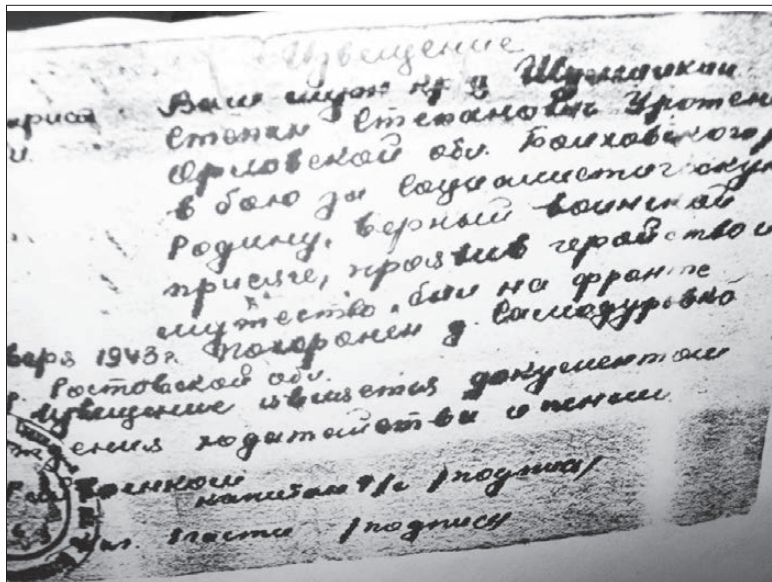 Извещение
Ваш муж кр-ц
Степан Степанович Уротен
Орловской обл. Болховского р
в бою за Социалистическую
Родину, верный воинской
присяге, проявив геройство и
мужество, был на фронте
1943г. Похоронен д. Самодуровка
Ростовской обл.
извещение является документом
ходатайства о пенсии
капитан а/с /подпись/
части /подпись